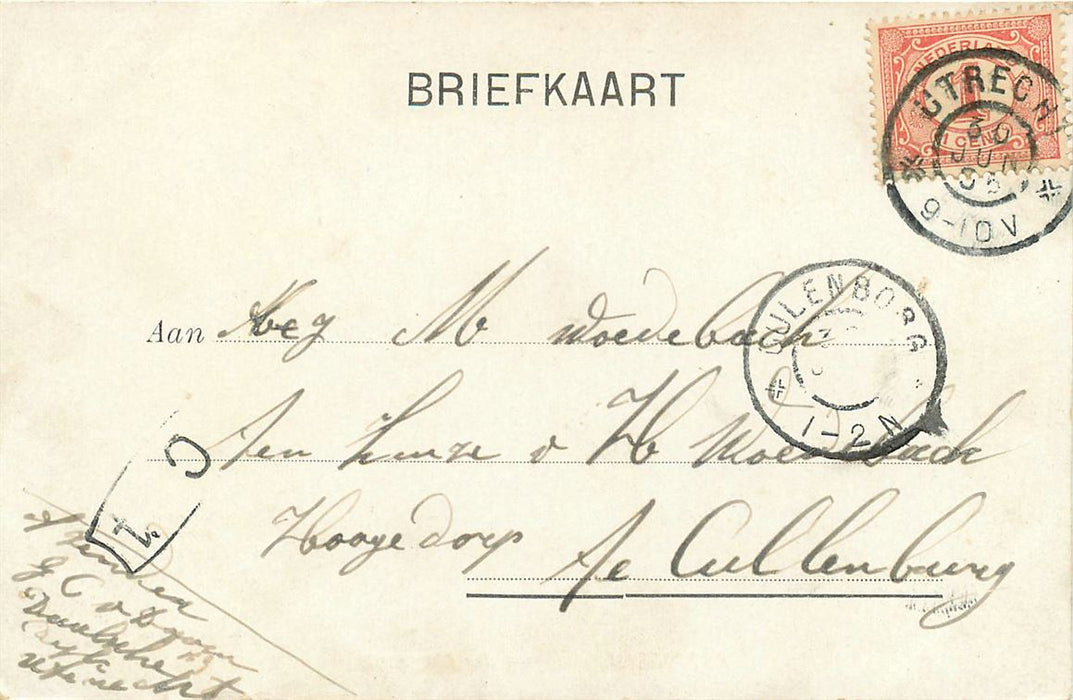 BRIEFKAART
NEDERLAND
1
1 CENT
UTRECHT
30
JUN
06
9-10V
CULENBORG
1-2N
Aan M Woedebach
Ten huize v H Woedebach
Hoogedorp Te Cullenburg
C
1
Utrecht